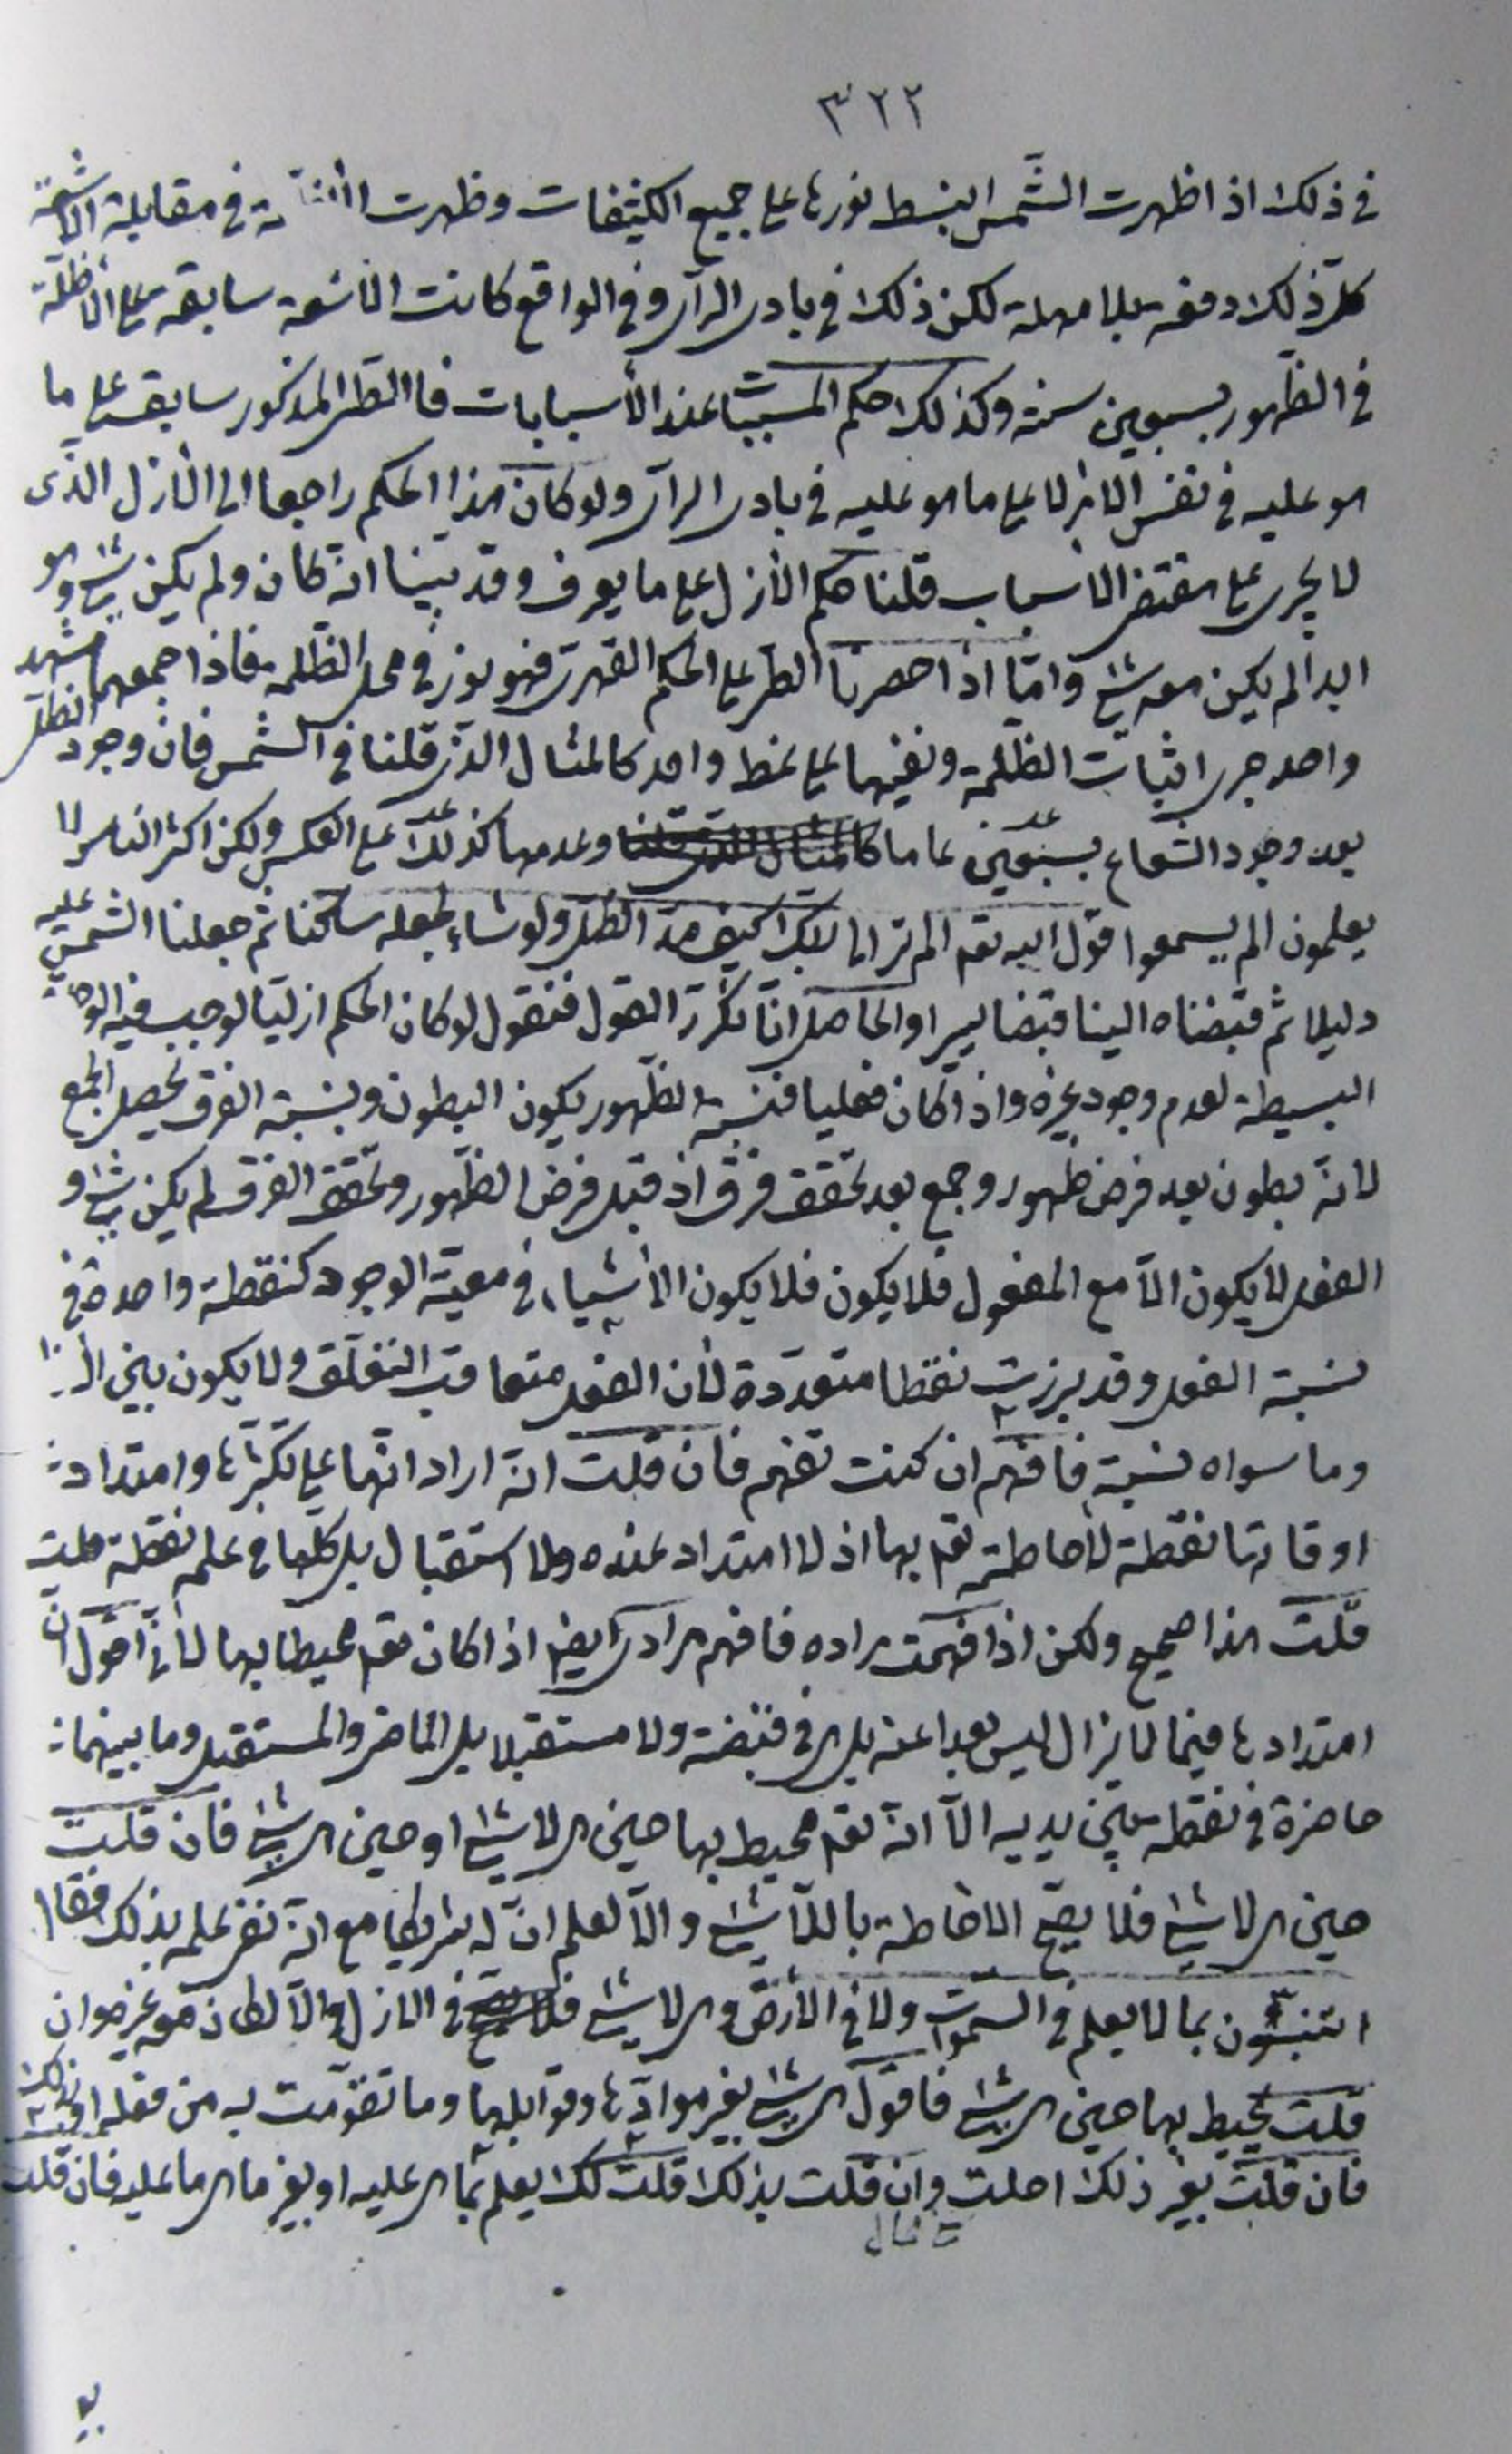 ٣٢٢
في ذلك اذا ظهرت الشّمس انبسط نورها على جميع الكثيفات وظهرت في مقابلة الاشعّة
كلّ ذلك دفعة بلا مهلة لكن ذلك في بادى الرأى وفي الواقع كانت الاشعة سابقة على الاظلّة
في الظّهور بسبعين سنة وكذلك حكم المسببات عند الأسبابات فالنظر المذكور سابقة على ما
هو عليه في نفس الامر لا على ما هو عليه في بادى الرأى ولو كان هذا الحكم راجعا الى الأزل الذّى
لا يجرى على مقتضى الاسباب قلنا حكم الأزل على ما يعرف وقد بيّنا انّه كان ولم يكن شئ وهو
ابدا لم يكن معه شئ وامّا اذا حصرنا النظر على الحكم القهرى فهو نور في محل الظّلمة فاذا جمعهما مشهد
واحد جرى اثبات الظّلمة ونفيها على نمط واحد كالمثال الذى قلنا في الشمس فانّ وجود الظلّ
بعد وجود الشعاع بسبعين عاما وعدمها كذلك على العكس ولكن اكثر الناس لا
يعلمون الم يسمعوا قول الله تعم الم تر الى ربّك كيف مدّ الظلّ ولو شاء لجعله ساكنا ثم جعلنا الشمس عليه
دليلا ثم قبضناه الينا قبضا يسيرا والحاصل انّا نكرّر القول فنقول لو كان الحكم ازليّا لوجب فيه الوحدة
البسيطة لعدم وجود غيره واذا كان فعليا فنسبة الظّهور يكون البطون وبنسبة الفرق يحصل الجمع
لانّه بطون بعد فرض ظهور وجمع بعد تحقق فرق اذ قبل فرض الظّهور وتحقق الفرق لم يكن شئ و
الفعل لا يكون الّا مع المفعول فلا يكون فلا يكون الأشياء في معيّة الوجود كنقطة واحدة في
نسبة الفعل وقد برزت نقطا متعدّدة لأن الفعل متعاقب التعلّق ولا يكون بين
وما سواه نسبة فافهم ان كنت تفهم فان قلت انّه اراد انّها على تكثّرها وامتداد
اوقاتها نقطة لاحاطته تعم بها اذ لا امتداد عنده ولا استقبال بل كلّها في علمه نقطة
قلت هذا صحيح ولكن اذا فهمت مراده فافهم مرادى ايضا اذا كان تعم محيطا بها لأنّى اقول انّ
امتدادها فيما لا يزال ليس بعيدا عنه بل هى في قبضته ولا مستقبلا بل الماضى والمستقبل وما بينهما
حاضرة في نقطة بين يديه الّا انّه تعم محيط بها حين هى لا شئ او حين هى شئ فان قلت
حين هى لا شئ فلا يصحّ الاحاطة باللّا شئ والّا لعلم انّ له شريكا مع انّه نفى علمه بذلك فقال
اتنبّئون بما لا يعلم في السّموات ولا في الأرض وهى لا شئ في الازل والّا لكان معه غيره وان
قلت محيط بها حين هى شئ فاقول هى شئ بغير موادّها وقوابلها وما تقوّمت به من فعله او بذلك
فان قلت بغير ذلك احلت وان قلت بذلك قلت لك يعلم بما هى عليه او بغير ما هى عليه فان قلت